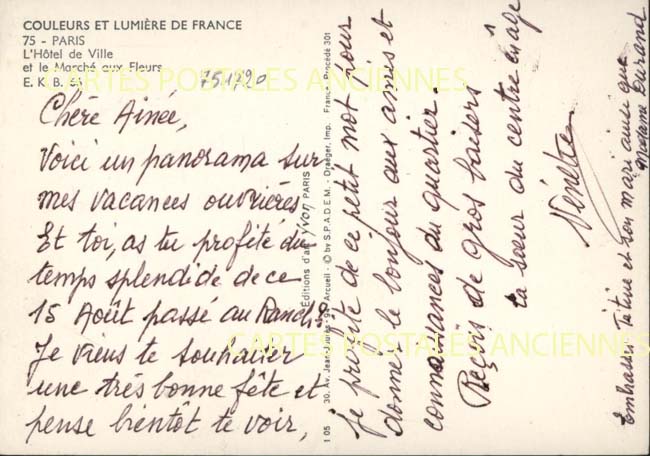 COULEURS ET LUMIÈRE DE FRANCE
75 - PARIS
L'Hôtel de Ville
et le Marché aux Fleurs
E. K. B. É.
751920
CARTES POSTALES ANCIENNES
Chère Ainée,
Voici un panorama sur
mes vacances ouvrières
Et toi, as tu profité du
temps splendide de ce
15 Août passé au Ranch?
CARTES POSTALES ANCIENNES
Je viens te souhaiter
une très bonne fête et
pense bientôt te voir,
Editions d'art YVON PARIS
1 05 30, Av. Jean Jaurès - 94 Arcueil - © by S.P.A.D.E.M. - Draeger, Imp. France - Procédé 301
Je profite de ce petit mot pour
donner le bonjour aux amis et
connaissances du quartier.
Reçois de gros baisers
ta soeur du centre en âge
Embrasse Titine et son mari ainsi que
Madame Durand